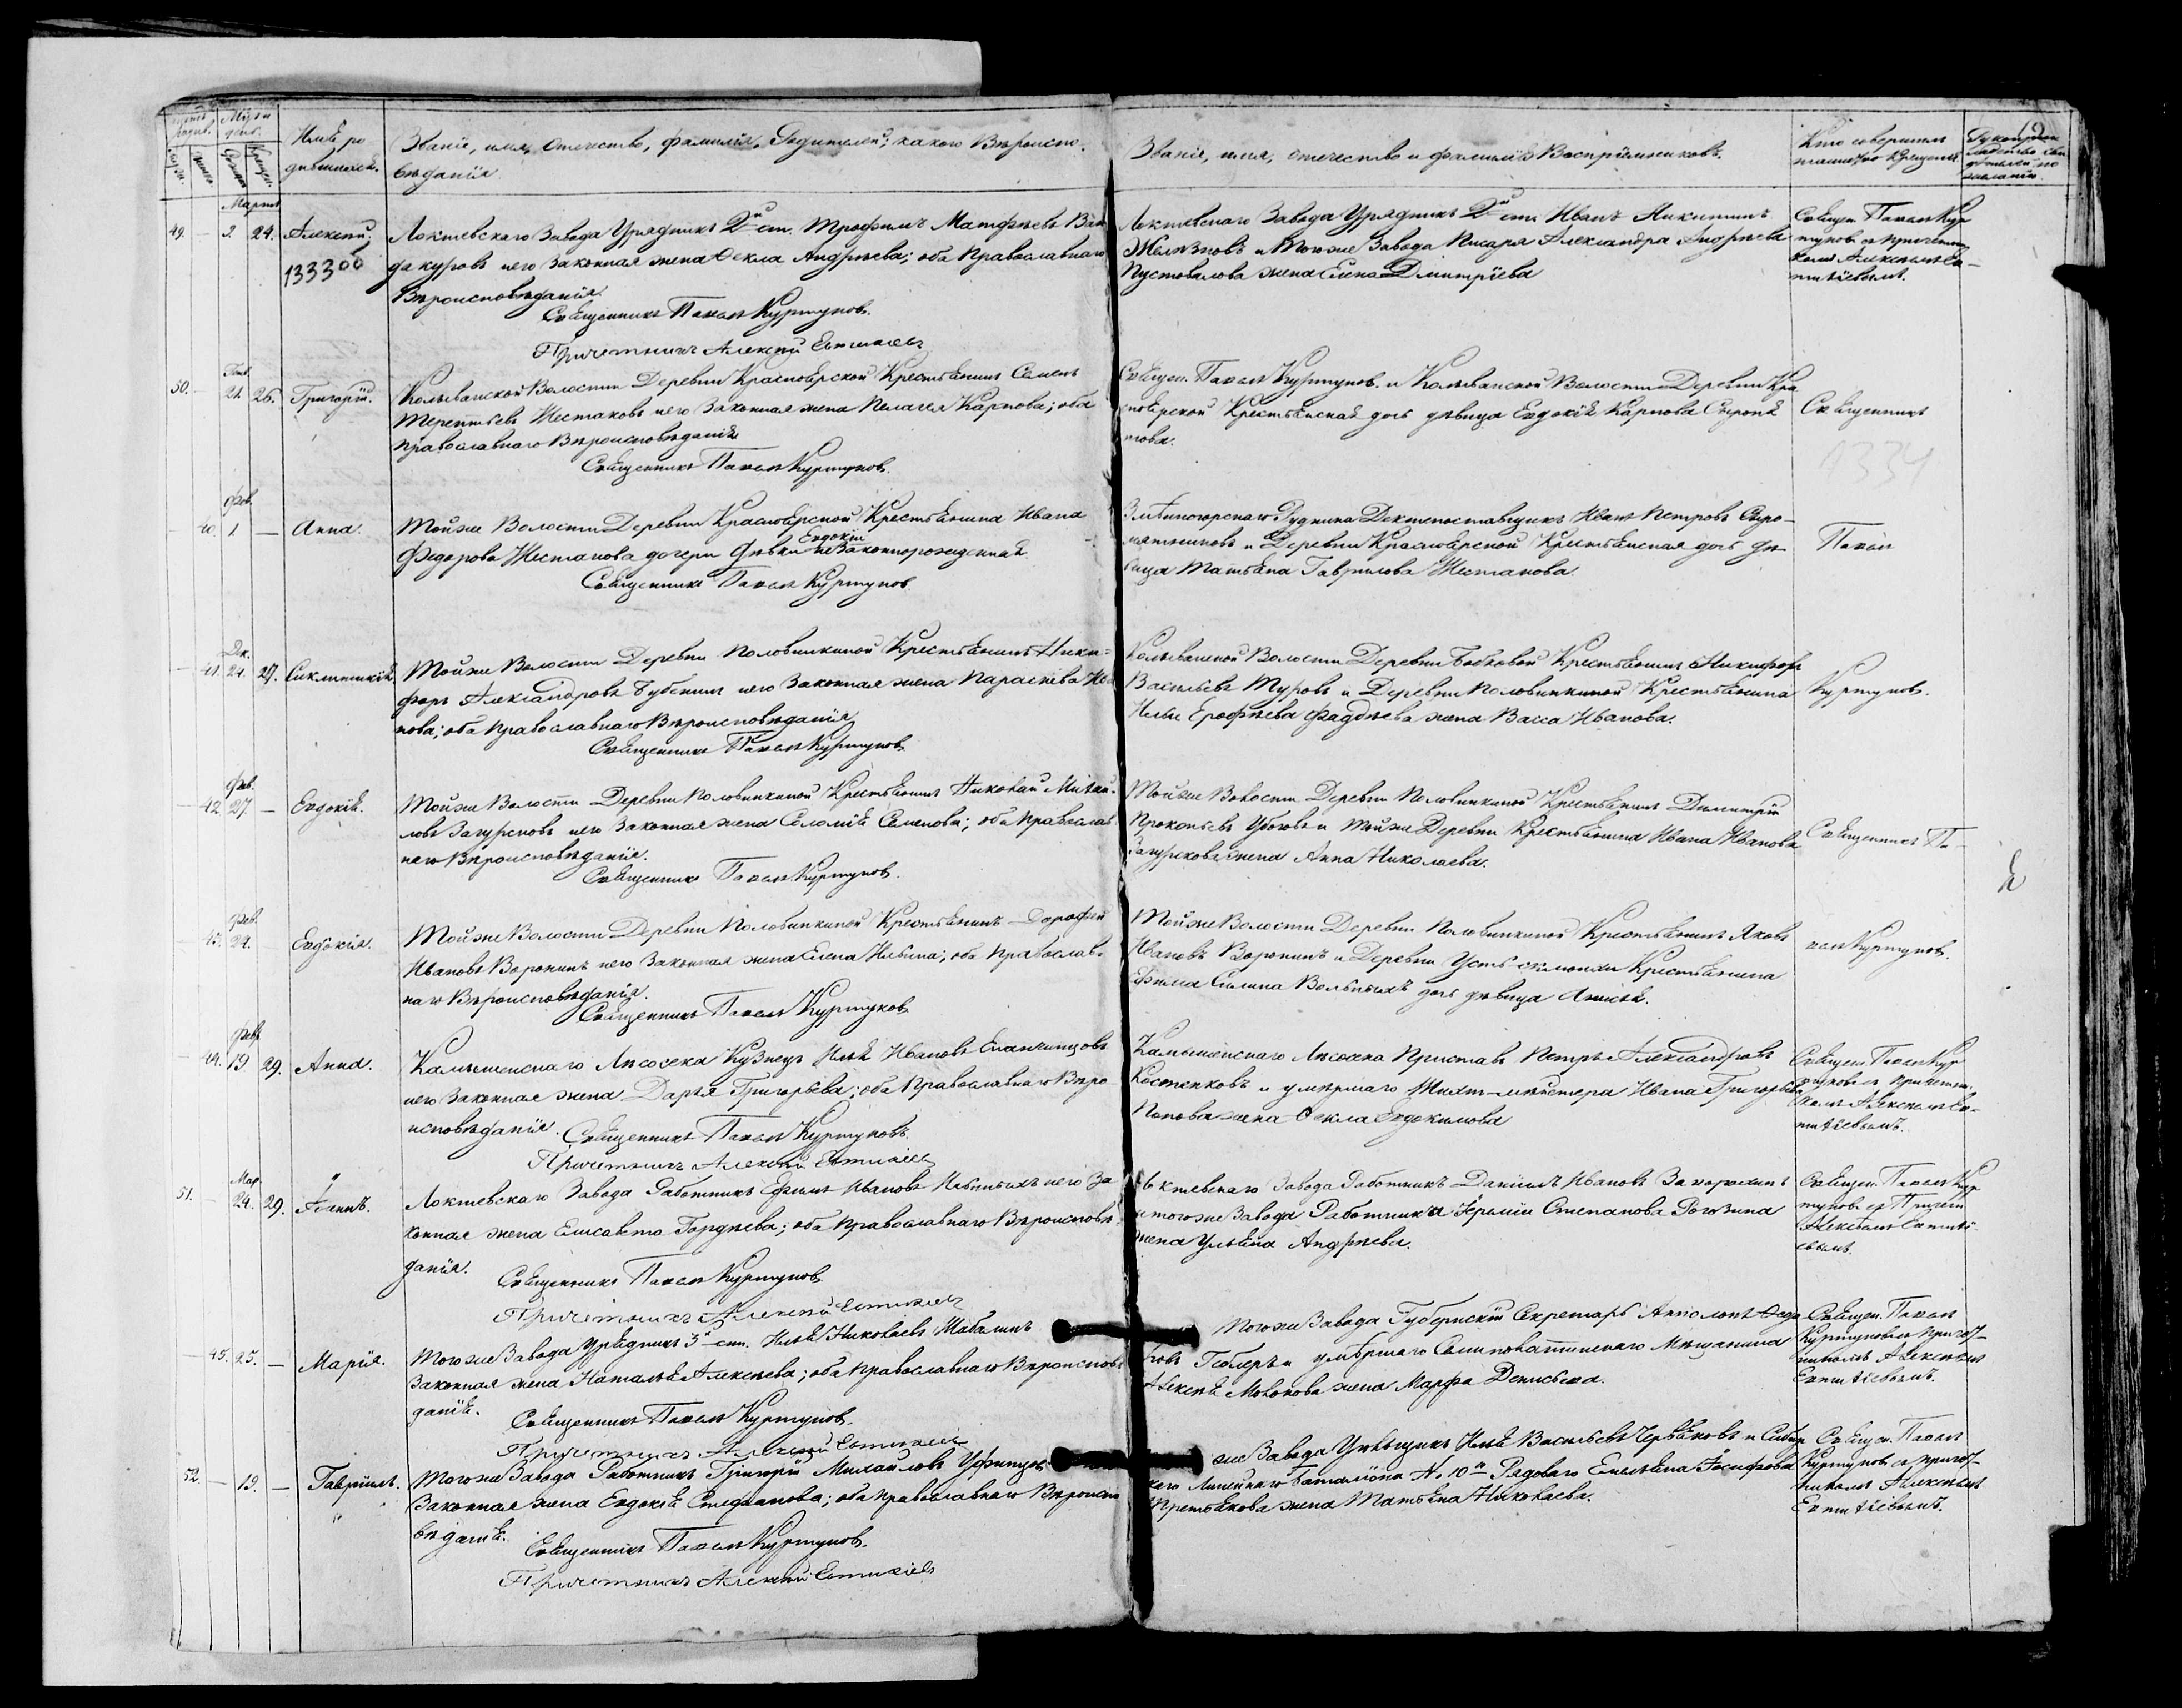 Имѣ ро
дившихсѣ.
Званіе, имя, отечество, фамилія, Родителей, какого Вѣроиспо-
вѣданія
Званіе, имя, отечество и фамиліѣ Воспріѣмниковъ.
Кто совершалъ
таинство крещенія
Мартъ
49. — 2. 24. Алексѣй.
133300
Локтевскаго Завода Урядникъ 2й ст. Трофимъ Матфѣевъ
его законная жена Ѳекла Андрѣева; оба Православнаго
Вѣроисповѣданія
Священникъ Павелъ Куртуковъ.
Причетникъ Алексѣй Евтихіевъ
Локтевскаго Завода Урядникъ 2й ст. Иванъ Никитинъ
Желѣзновъ и того же Завода Писаря Александра Андрѣева
Пустовалова жена Елена Дмитріева
Священ. Павелъ Кур
туковъ съ причетни
комъ Алексѣемъ Ев—
тихіевымъ.
50. — 21. 26. Григорій.
Колыванской Волости Деревни Красноѣрской Крестьѣнинъ Семенъ
Терентьевъ Шестаковъ и его законная жена Пелагея Карпова; оба
православнаго Вѣроисповѣданіѣ
Священникъ Павелъ Куртуковъ
Священ. Павелъ Куртуковъ. и Колыванской Волости Деревни Кра
сноѣрской Крестьѣнскаѣ дочь дѣвица Евдокіѣ Карпова
Священникъ
1334
Фев.
40. 1. — Анна.
Той же Волости Деревни Красноѣрской Крестьѣнина Ивана
Федорова Шестакова дочери дѣвки Евдокіи незаконнорожденнаѣ
Священникъ Павелъ Куртуковъ
Змѣиногорскаго Рудника Иванъ Петровъ Сыро—
мятниковъ и Деревни Красноѣрской Крестьѣнская дочь дѣ—
вица Татьѣна Гаврилова Шестакова.
Павелъ
Дек.
41. 24. 27. Сиклитикіѣ.
Той же Волости Деревни Половинкиной Крестьѣнинъ Ники=
форъ Александровъ Бубенинъ и его Законная жена Параскева Ива
нова; оба православнаго Вѣроисповѣданія
Священникъ Павелъ Куртуковъ
Колыванской Волости Деревни Бобковой Крестьѣнинъ Никифоръ
Васильевъ Туровъ и Деревни Половинкиной Крестьѣнина
Ильи Ерофѣева Фадѣева жена Васса Иванова.
Куртуковъ.
Фев.
42. 27. — Евдокіѣ.
Той же Волости Деревни Половинкиной Крестьѣнинъ Николай Михай-
ловъ Загурсковъ и его Законная жена Соломіѣ Семенова; оба Православ
наго Вѣроисповѣданія.
Священникъ Павелъ Куртуковъ.
Той же Волости Деревни Половинкиной Крестьѣнинъ Димитрій
Прокопьевъ и той же Деревни Крестьѣнина Ивана Иванова
Загурскова жена Анна Николаева.
Священникъ Па—
Фев.
43. 24. — Евдокія.
Той же Волости Деревни Половинкиной Крестьѣнинъ Дорофей
Ивановъ Воронинъ и его Законная жена Елена Ильина; оба Православ-
наго Вѣроисповѣданія.
Священникъ Павелъ Куртуковъ
Той же Волости Деревни Половинкиной Крестьѣнинъ Яковъ
Ивановъ Воронинъ и Деревни Крестьѣнина
Ефима Силина дочь дѣвица Анисьѣ.
велъ Куртуковъ.
Фев
44. 19. 29. Анна.
Камышенскаго Лѣсосека Кузнецъ Ильѣ Ивановъ Епанчинцовъ
и его Законная жена Дарья Григорьева; оба Православнаго Вѣро
исповѣданія.
Священникъ Павелъ Куртуковъ.
Причетникъ Алексѣй Евтихіевъ
Камышенскаго Лѣсосека Приставъ Петръ Александровъ
Костенковъ и умершаго Шихт-мѣйстера Ивана Григорьева
Попова жена Ѳекла Евдокимова
Священ. Павелъ Кур
туковъ съ причетни-
комъ Алексѣемъ Ев-
тихіевымъ.
Мар.
51. — 24. 29. Іоаннъ.
Локтевскаго Завода Работникъ Ефимъ Ивановъ Ильиныхъ и его За
конная жена Елисавета Гордѣева; оба православнаго Вѣроисповѣ
данія.
Священникъ Павелъ Куртуковъ
Причетникъ Алексѣй Евтихіевъ
Локтевскаго Завода Работникъ Даніилъ Ивановъ
и того же Завода Работника Степанова Рогозина
жена Ульѣна Андрѣева.
Священ. Павелъ Кур
туковъ съ Причет
Алексѣемъ Евтихі
евымъ.
— 45. 25. — Марія.
Того же Завода Урѣдникъ 3й ст. Ильѣ Николаевъ Шабалинъ
Законная жена Натальѣ Алексѣева; оба православнаго Вѣроисповѣ
даніѣ.
Священникъ Павелъ Куртуковъ.
Причетникъ Алексѣй Евтихіевъ
Того же Завода Губернскій Секретарь Ѳедо
ровъ Геблеръ и умѣршаго Семипалатинскаго Мѣщанина
Алексѣѣ Молокова жена Марфа Денисьева.
Священ. Павелъ
Куртуковъ съ причет-
никомъ Алексѣемъ
Евтихіевымъ.
52. — 19. — Гавріилъ.
Того же Завода Работникъ Григорій Михайловъ Уфинцовъ
Законная жена Евдокіѣ Стефанова; оба православнаго Вѣроиспо
вѣданіѣ.
Священникъ Павелъ Куртуковъ.
Причетникъ Алексѣй Евтихіевъ
же Завода Ильѣ Васильевъ Червѣковъ и Сибир
скаго Линейнаго Баталіона №. 10й Рядоваго Емельѣна Іосифова
Третьѣкова жена Татьѣна Николаева.
Священ. Павелъ
Куртуковъ съ причет-
никомъ Алексѣемъ
Евтихіевымъ.